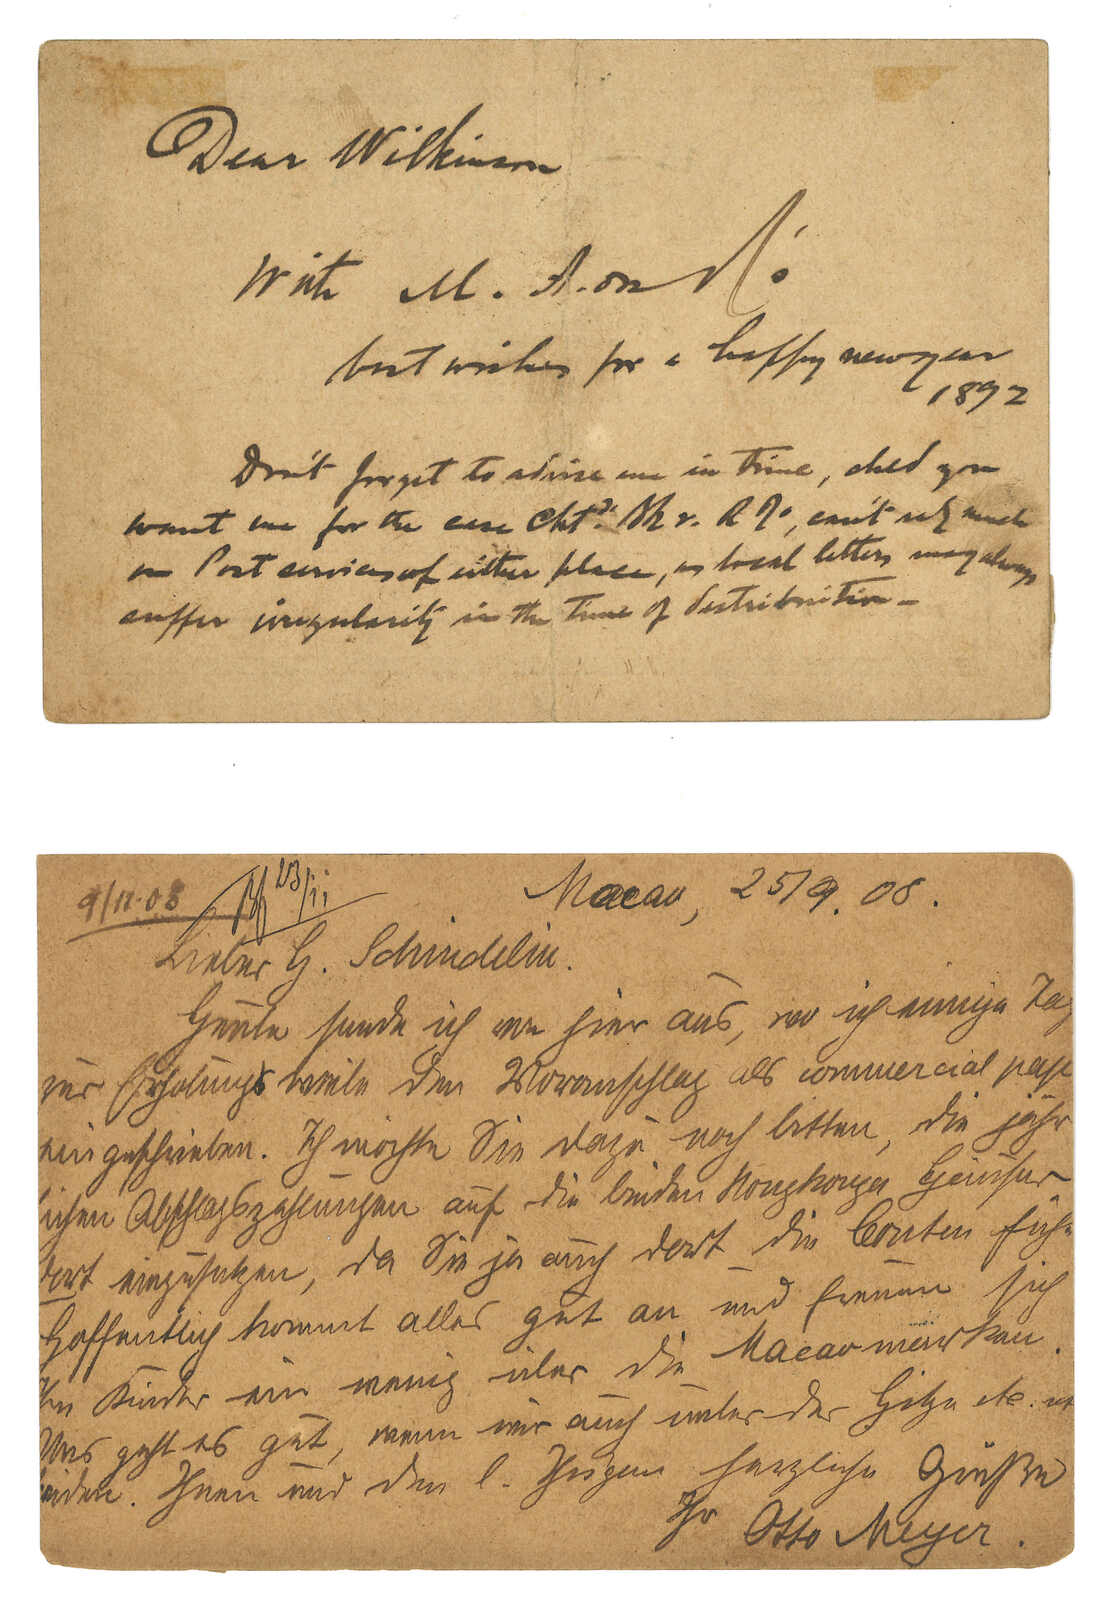 Dear Wilkinson
With M. A.
best wishes for a happy new year
1892
Don't forget to advise me in time, shld you
want me for the case Chtd. v. R, can't rely much
on Post services of either place, as local letters may always
suffer irregularity in the time of distribution -
9/11.08 23/11 Macao, 25/9. 08.
Lieber H. Schindelin.
Heute sende ich von hier aus, wo ich einige Tag
zur Erholung weile den Voranschlag als commercial pap
eingeschrieben. Ich möchte Sie dazu noch bitten, die jähr
lichen Abschlagszahlungen auf die beiden Hongkonger Häuser
dort einzusetzen, da Sie ja auch dort die Conten füh
Hoffentlich kommt alles gut an und freuen sich
Ihre Kinder ein wenig über die Macaomarken.
Uns geht es gut, wenn wir auch unter der Hitze etc.
leiden. Ihnen und den l. Ihrigen herzliche Grüße
Ihr Otto Meyer.